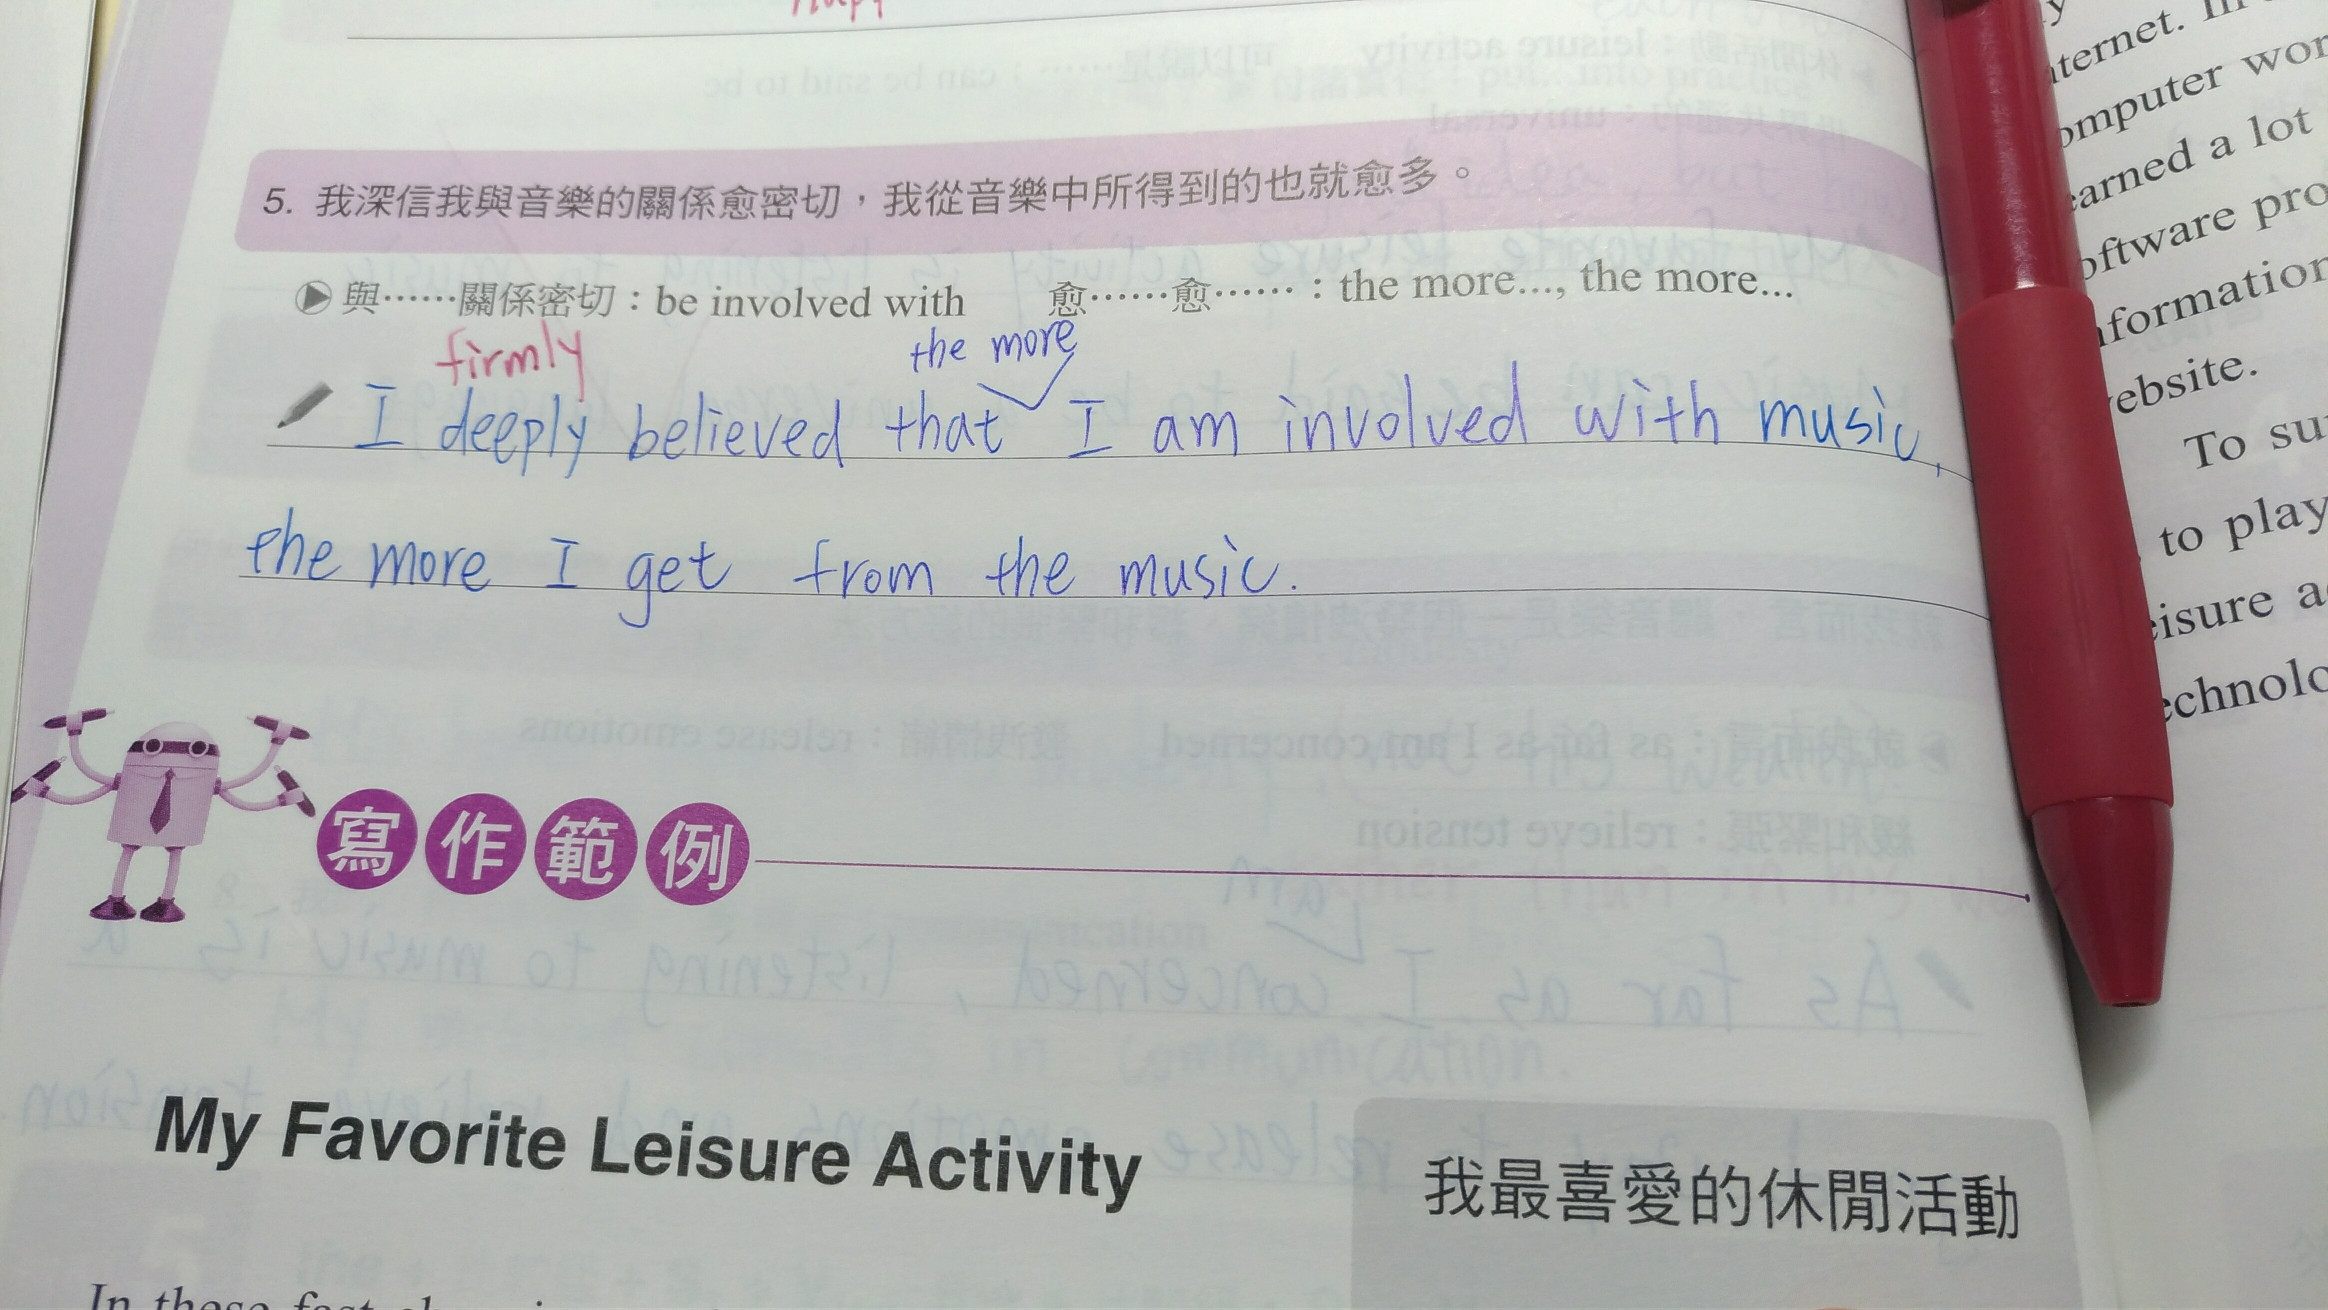 5. 我深信我與音樂的關係愈密切，我從音樂中所得到的也就愈多。
與……關係密切：be involved with 愈……愈……：the more..., the more...
firmly the more
I deeply believed that I am involved with music,
the more I get from the music.
寫作範例
My Favorite Leisure Activity
我最喜愛的休閒活動
In these fast
nternet. In
omputer wor
earned a lot
oftware pro
nformation
website.
To su
to play
eisure a
echnolo